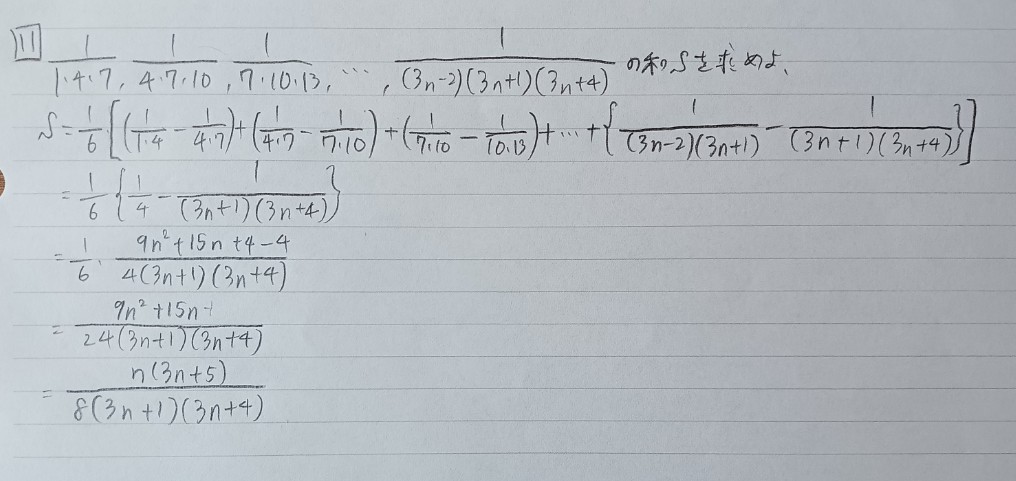 11 1/(1・4・7), 1/(4・7・10), 1/(7・10・13), …, 1/((3n-2)(3n+1)(3n+4)) の和Sを求めよ、
S=1/6[(1/(1・4)-1/(4・7))+(1/(4・7)-1/(7・10))+(1/(7・10)-1/(10・13))+…+{1/((3n-2)(3n+1))-1/((3n+1)(3n+4))}]
=1/6{1/4-1/((3n+1)(3n+4))}
=1/6・(9n²+15n+4-4)/(4(3n+1)(3n+4))
=(9n²+15n)/(24(3n+1)(3n+4))
=n(3n+5)/(8(3n+1)(3n+4))